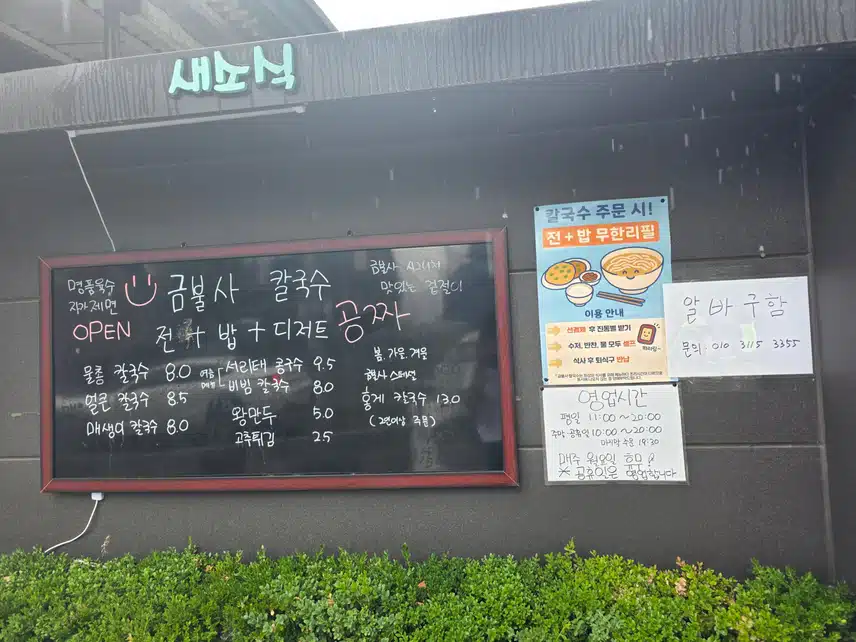 새소식
명품육수
자가제면
금불사 칼국수
금불사 시그니처
맛있는 겉절이
OPEN
전+밥+디저트 공짜
물총 칼국수 8.0
얼큰 칼국수 8.5
매생이 칼국수 8.0
여름 서리태 콩국수 9.5
메뉴 비빔 칼국수 8.0
왕만두 5.0
고추튀김 2.5
봄, 가을, 겨울
행사 스페셜
홍게 칼국수 13.0
(2인이상 주문)
칼국수 주문 시!
전+밥 무한리필
이용 안내
선결제 후 진동벨 받기
수저, 반찬, 물 모두 셀프
식사 후 퇴식구 반납
알바구함
문의 010 3115 3355
영업시간
평일 11:00~20:00
주말·공휴일 10:00~20:00
마지막 주문 19:30
매주 월요일 휴무!
※ 공휴일은 영업합니다